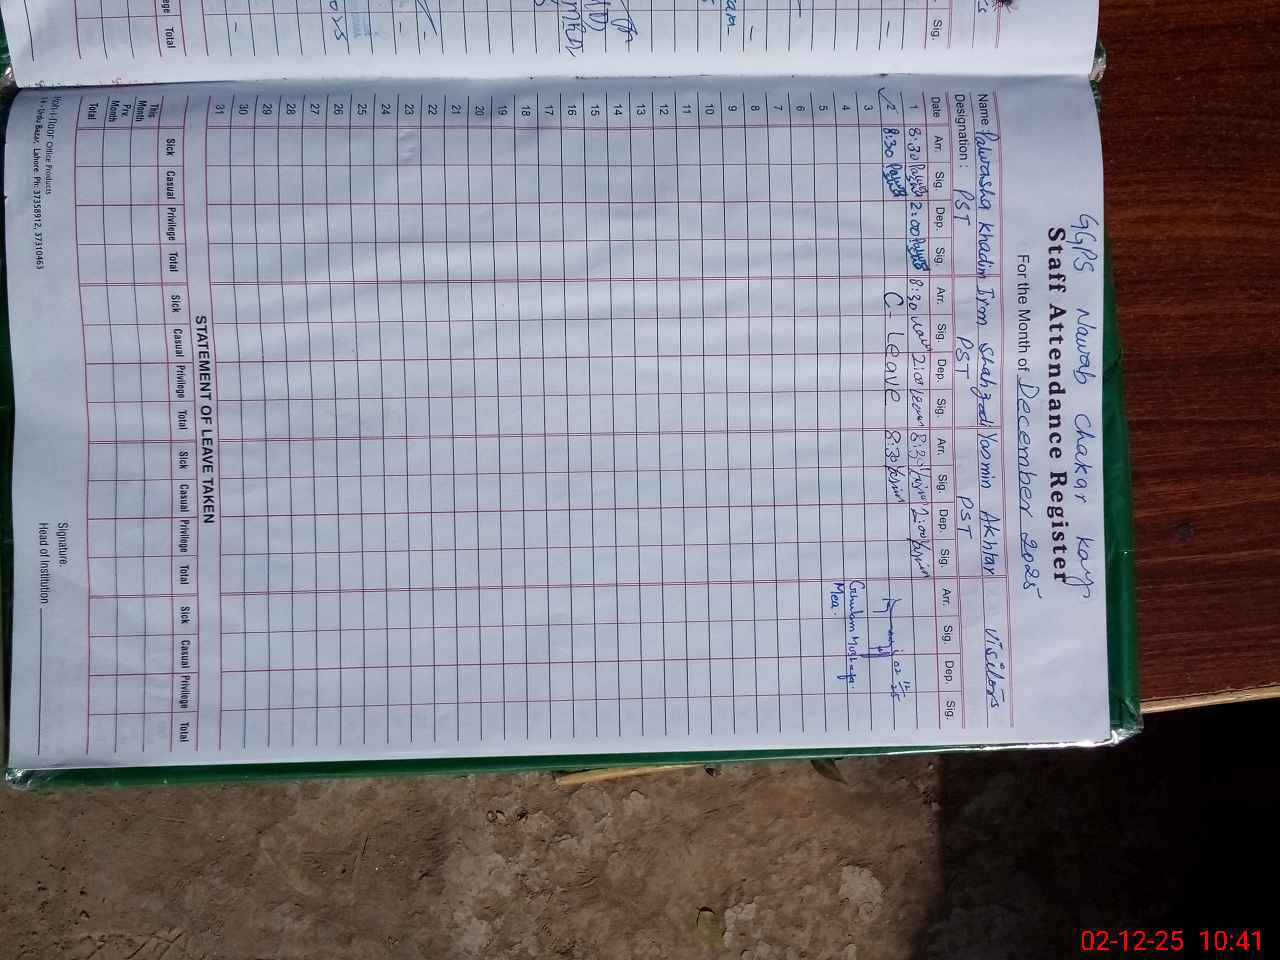 GGPS Nawab Chakar Kay
Staff Attendance Register
For the Month of December 2025
Name: Palwasha Khadim Irm Shahzadi Yasmin Akhtar Visitors
Designation: PST PST PST
Date Arr. Sig. Dep. Sig. Arr. Sig. Dep. Sig. Arr. Sig. Dep. Sig. Arr. Sig. Dep. Sig.
1 8:30 2:00 8:30 2:00 8:30 2:00
2 8:30 C-Leave 8:30
3
4
5
6
7
8
9
10
11
12
13
14
15
16
17
18
19
20
21
22
23
24
25
26
27
28
29
30
31
STATEMENT OF LEAVE TAKEN
Sick Casual Privilege Total Sick Casual Privilege Total Sick Casual Privilege Total Sick Casual Privilege Total
This Month
Prv. Month
Total
Signature.
Head of Institution
Office Products
Urdu Bazar, Lahore. Ph: 37358912, 37310463
Total
Sig.
02-12-25 10:41